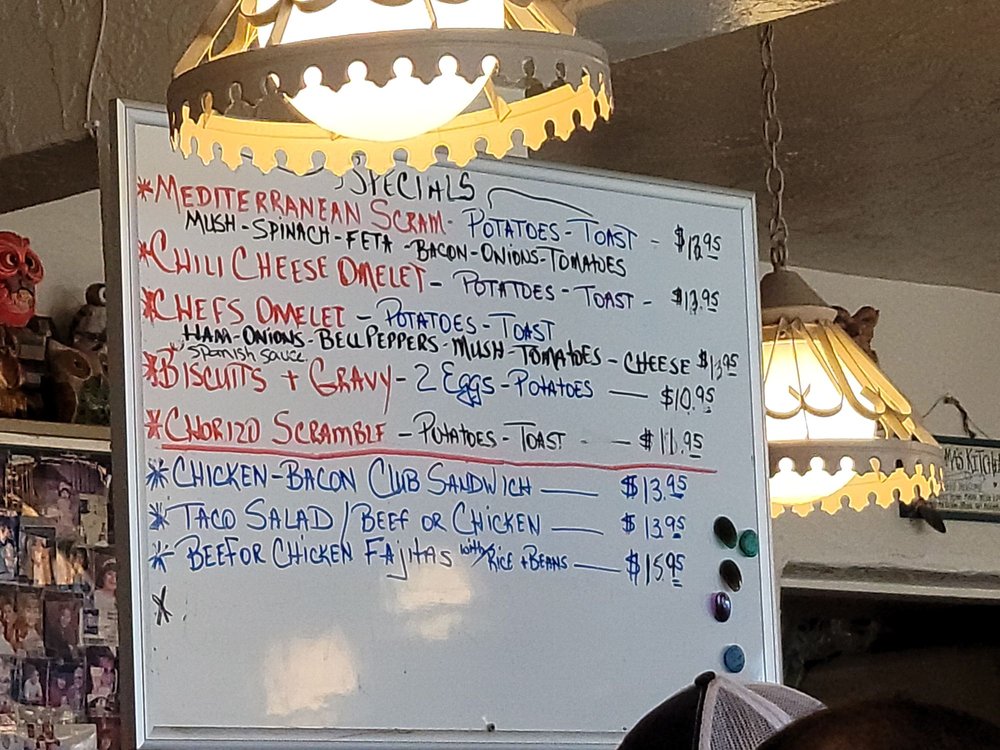 SPECIALS
*MEDITERRANEAN SCRAM- POTATOES-TOAST - $13.95
MUSH-SPINACH-FETA-BACON-ONIONS-TOMATOES
*CHILI CHEESE OMELET- POTATOES-TOAST- $13.95
*CHEFS OMELET - POTATOES-TOAST
HAM-ONIONS-BELLPEPPERS-MUSH-TOMATOES-CHEESE $13.95
Spanish sauce
*BISCUITS + GRAVY-2 Eggs-POTATOES — $10.95
*CHORIZO SCRAMBLE -POTATOES-TOAST - - $11.95
*CHICKEN-BACON CLUB SANDWICH — $13.95
*TACO SALAD/BEEF OR CHICKEN — $13.95
*BEEF OR CHICKEN FAJITAS with RICE + BEANS — $15.95
*